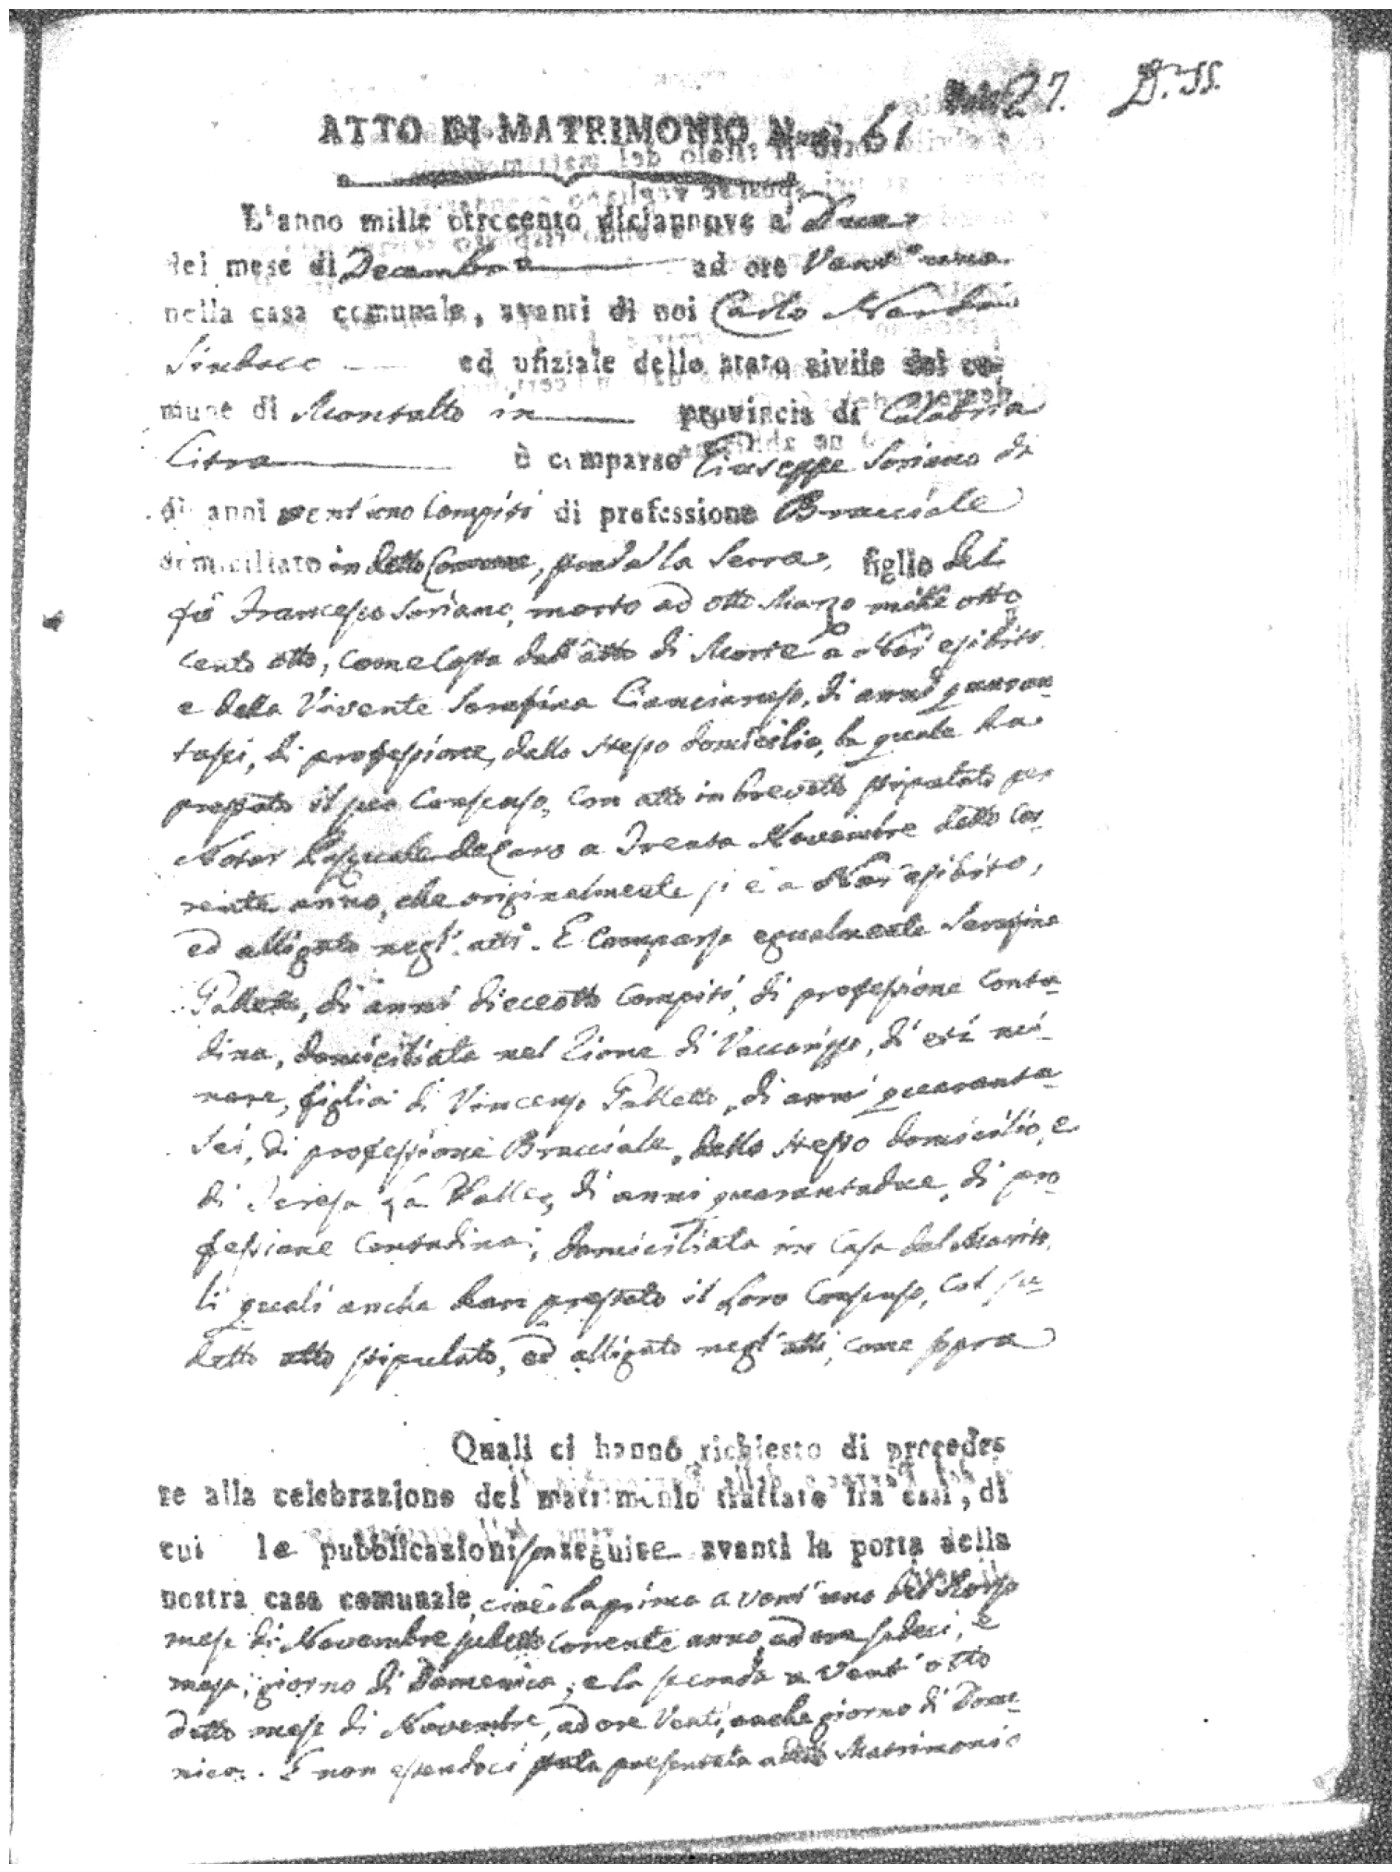 27.
ATTO DI MATRIMONIO Num. 61
L'anno mille ottocento diciannove a' Due
del mese di Decembre ad ore Vent'una
nella casa comunale, avanti di noi Carlo
Sindaco ed ufiziale dello stato civile del co-
mune di Montalto in provincia di Calabria
Citra è comparso Giuseppe Soriano di
di anni vent'uno Compiti di professione Bracciale
domiciliato in detto Comune, alla Serra, figlio del
fù Francesco Soriano, morto ad otto Marzo mille otto
cento otto, come costa dall'atto di Morte a Noi esibito,
e della Vivente Serafina Cianciaruso, di anni quaran
tasei, di professione, dello stesso domicilio, la quale ha
prestato il suo Consenso, con atto in brevetto stipulato per
Notar Pasquale de Caro a Trenta Novembre detto cor-
rente anno, che originalmente si è a Noi esibito,
ed alligato negl'atti. E Comparsa egualmente Serafina
di anni dieceotto Compiti, di professione Conta-
dina, domiciliata nel Rione di Vaccarizzo, di età mi-
nore, figlia di Vincenzo di anni quaranta-
sei, di professione Bracciale, dello stesso domicilio, e
di Teresa La Valle, di anni quarantadue, di pro-
fessione Contadina, domiciliata in Casa del Marito,
li quali anche han prestato il loro Consenso, col su-
detto atto stipulato, ed alligato negl'atti, come sopra
Quali ci hanno richiesto di procede-
re alla celebrazione del matrimonio trattato fra essi, di
cui le pubblicazioni son seguite avanti la porta della
nostra casa comunale, cioè la prima a vent'uno del scorso
mese di Novembre sudetto corrente anno, ad ore sedeci, e
meza, giorno di Domenica, e la seconda a vent'otto
detto mese di Novembre, ad ore Venti, anche giorno di Dome-
nica. E non essendoci stata presentata a detto Matrimonio